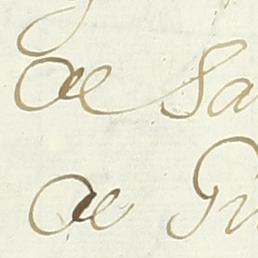 de Sa
de Gr